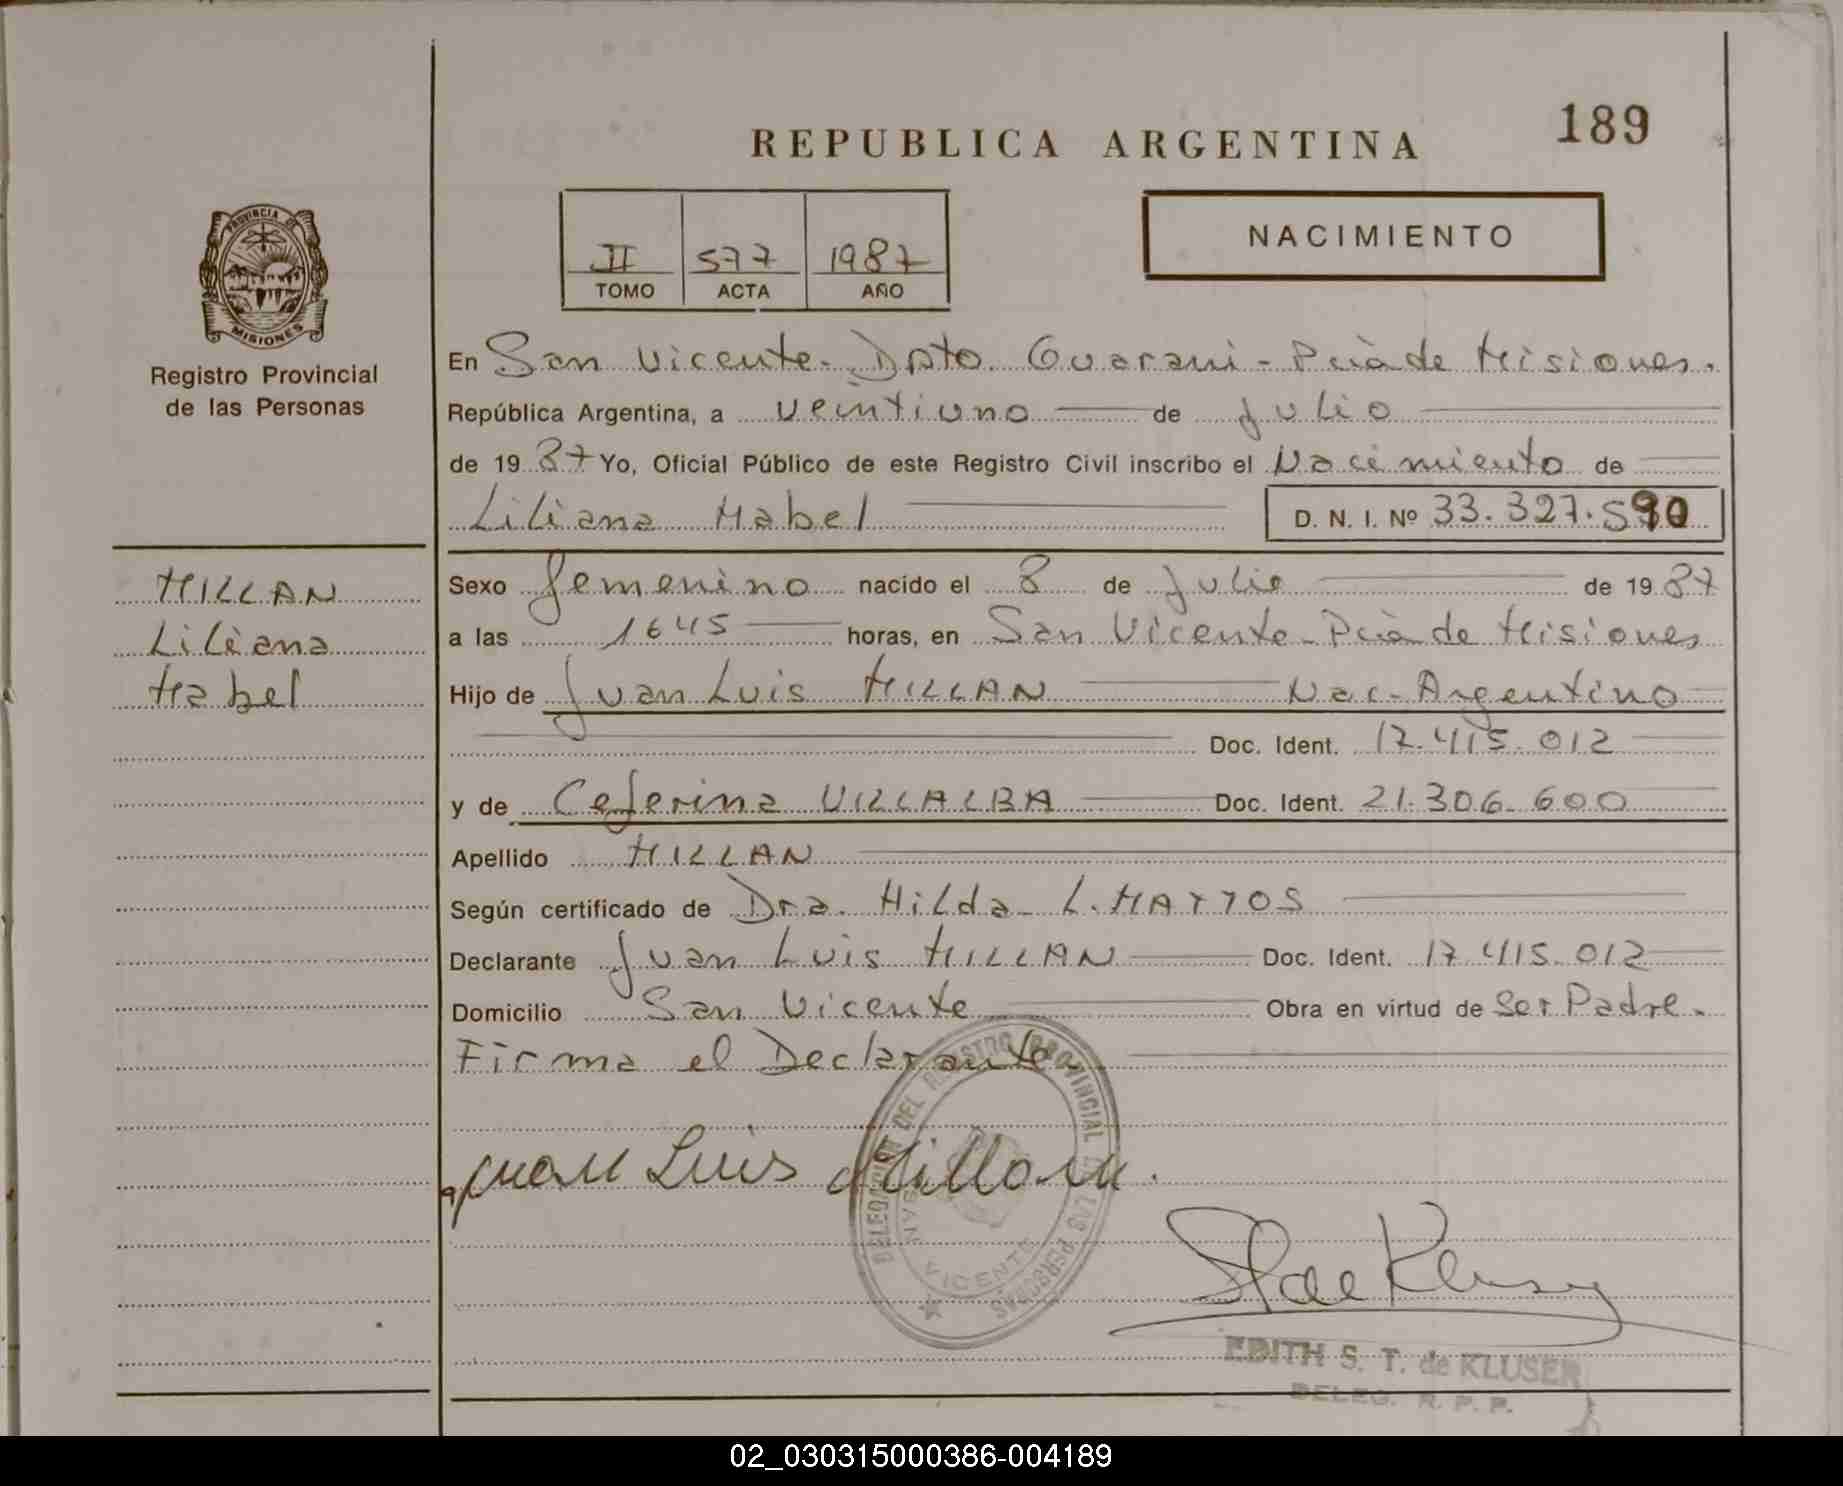 REPUBLICA ARGENTINA
189
II 577 1987
TOMO ACTA AÑO
NACIMIENTO
PROVINCIA DE
MISIONES
Registro Provincial
de las Personas
En San Vicente. Dpto. Guarani - Pcia de Misiones.
República Argentina, a veintiuno de Julio
de 19 87 Yo, Oficial Público de este Registro Civil inscribo el Nacimiento de
Liliana Mabel D. N. I. Nº 33.327.590
MILLAN
Liliana
Mabel
Sexo femenino nacido el 8 de Julio de 19 87
a las 1645 horas, en San Vicente - Pcia de Misiones
Hijo de Juan Luis MILLAN Nac. Argentino
Doc. Ident. 17.415.012
y de Ceferina VILLALBA Doc. Ident. 21.306.600
Apellido MILLAN
Según certificado de Dra. Hilda L. MATTOS
Declarante Juan Luis MILLAN Doc. Ident. 17.415.012
Domicilio San Vicente Obra en virtud de Ser Padre.
Firma el Declarante
DELEGACION DEL REGISTRO PROVINCIAL DE LAS PERSONAS
SAN VICENTE
Juan Luis Millan.
S T de Kluser
EDITH S. T. de KLUSER
DELEG. R. P. P.
02_030315000386-004189